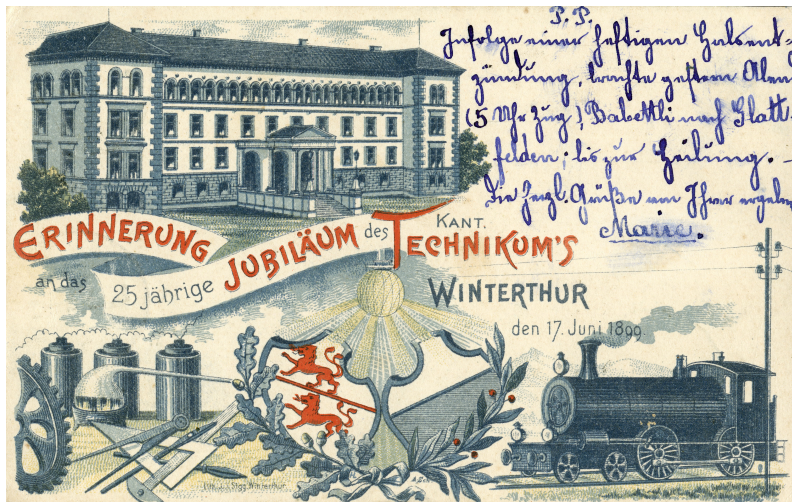 P. P.
Infolge einer heftigen Halsent-
zündung, brachte gestern Aben
(5 Uhr Zug) Babettli nach Glatt-
felden; bis zur Heilung. –
Die herzl. Grüße von Ihrer ergeben
Marie.
ERINNERUNG
an das 25 jährige JUBILÄUM des KANT. TECHNIKUM'S
WINTERTHUR
den 17. Juni 1899
Lith. J. J. Sigg, Winterthur.